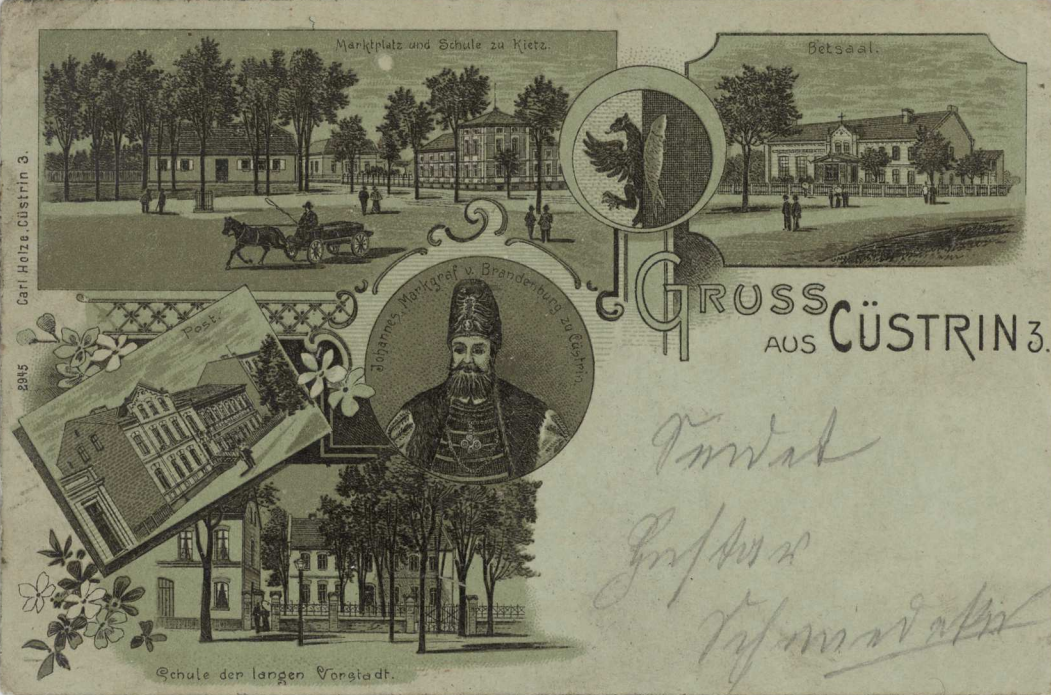 Marktplatz und Schule zu Kietz.
Betsaal.
Carl Holze, Cüstrin 3.
2945
Post.
Johannes, Markgraf v. Brandenburg zu Cüstrin.
GRUSS
AUS CÜSTRIN 3.
Sendet
Gustav
Schule der langen Vorstadt.